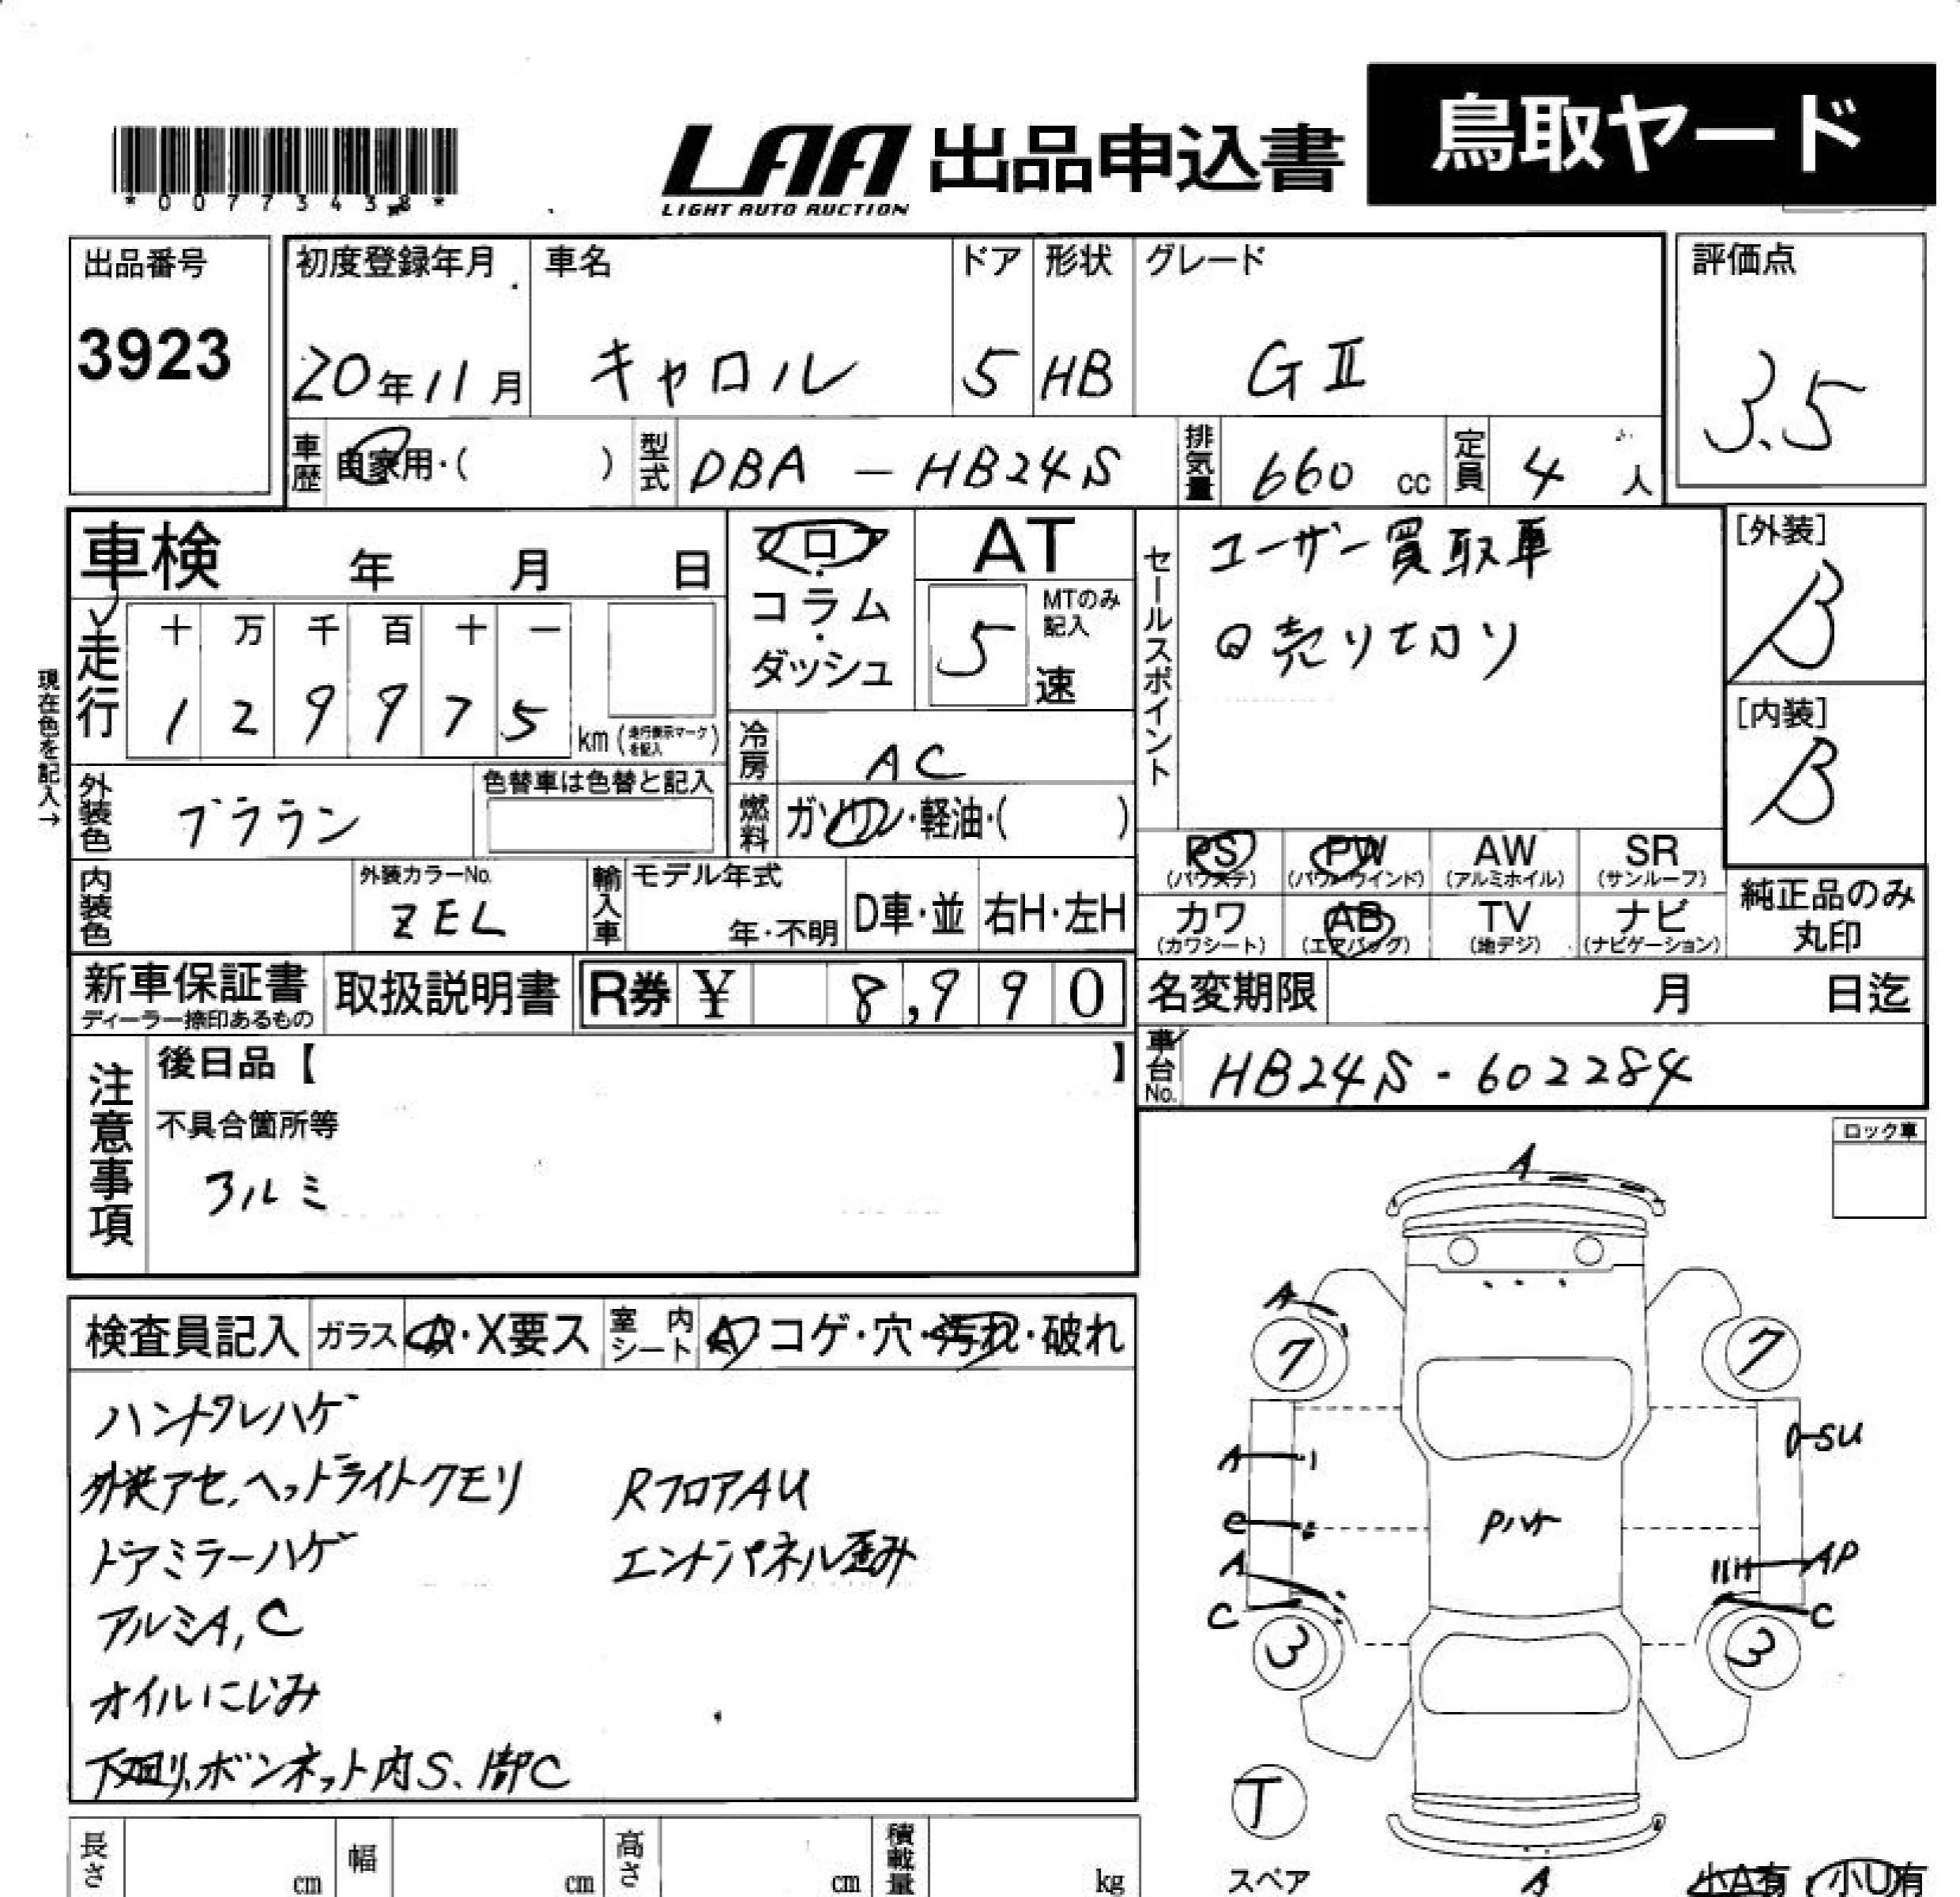 鳥取ヤード
LAA 出品申込書
LIGHT AUTO AUCTION
*00773438*
出品番号 3923
初度登録年月 20年11月
車名 キャロル
ドア 5
形状 HB
グレード GⅡ
評価点 3.5
車歴 自家用・( )
型式 DBA - HB24S
排気量 660 cc
定員 4 人
車検 年 月 日
フロア・コラム・ダッシュ
AT
5 MTのみ記入 速
セールスポイント
ユーザー買取車
売り切り
[外装] B
[内装] B
現在色を記入→
走行 十 万 千 百 十 一
1 2 9 9 7 5 km (走行表示マークを記入)
冷房 AC
外装色 ブラウン
色替車は色替と記入
燃料 ガソリン・軽油・( )
PS (パワステ)
PW (パワーウインド)
AW (アルミホイル)
SR (サンルーフ)
内装色
外装カラーNo. ZEL
輸入車 モデル年式 年・不明
D車・並
右H・左H
カワ (カワシート)
AB (エアバッグ)
TV (地デジ)
ナビ (ナビゲーション)
純正品のみ丸印
新車保証書 ディーラー捺印あるもの
取扱説明書
R券 ¥ 8,990
名変期限 月 日迄
車台No. HB24S-602284
注意事項
後日品【 】
不具合箇所等
アルミ
ロック車
検査員記入
ガラス A・X要ス
室内シート A コゲ・穴・汚れ・破れ
ハンドルハゲ
外装アセ、ヘッドライトクモリ RフロアAU
ドアミラーハゲ エンドパネル歪み
アルミA,C
オイルにじみ
下回り、ボンネット内S、部C
A
A
7 7
A SU
C
A AP
C C
3 3
T
スペア
A
小A有・小U有
長さ cm
幅 cm
高さ cm
積載量 kg